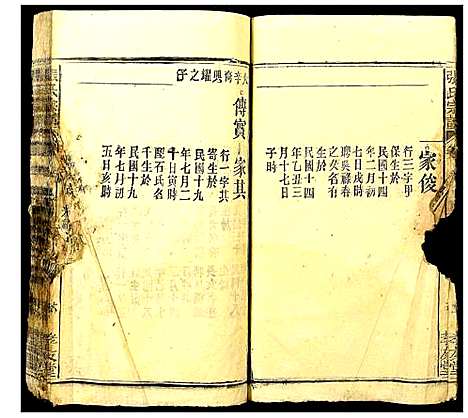 張氏宗譜
家俊
行三字甲
保生於
民國十四
年二月初
七日戌時
聘吳祿春
之女名
生於
民國十四
年乙丑三
月十七日
子時
大幸裔興耀之子
傳寶
家其
行一字其
寄生於
民國十九
年七月二
十日寅時
配石氏名
千生於
民國十九
年七月初
五日亥時
孝友堂